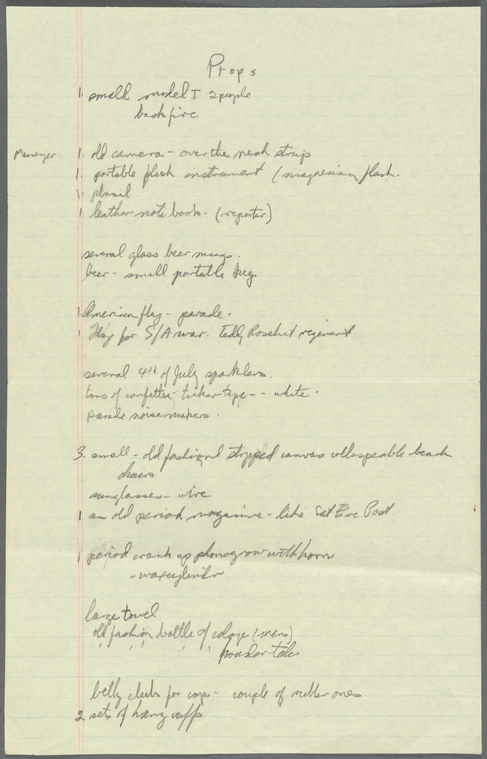 Props
1 small model T 2 people
backfire
1. old camera - over the neck strap
1. portable flash instrument (magnesium flash.
1. pencil
1 leather note book - (reporter)
several glass beer mugs.
beer - small portable keg
1 American flag - parade.
1 flag for S/A war. Teddy regiment
several 4th of July sparklers.
tons of confetti - ticker tape - - white -
parade noisemakers.
3. small - old fashioned stripped canvas collaspeable beach
chairs
sunglasses - wire
1 an old period magazine - like Sat Eve Post.
1 period crank up with horn
- wax cylinder
large towel
old fashion bottle of (mens)
" " " " powder talc
billy clubs for cops - couple of rubber ones
2 sets of hang cuffs